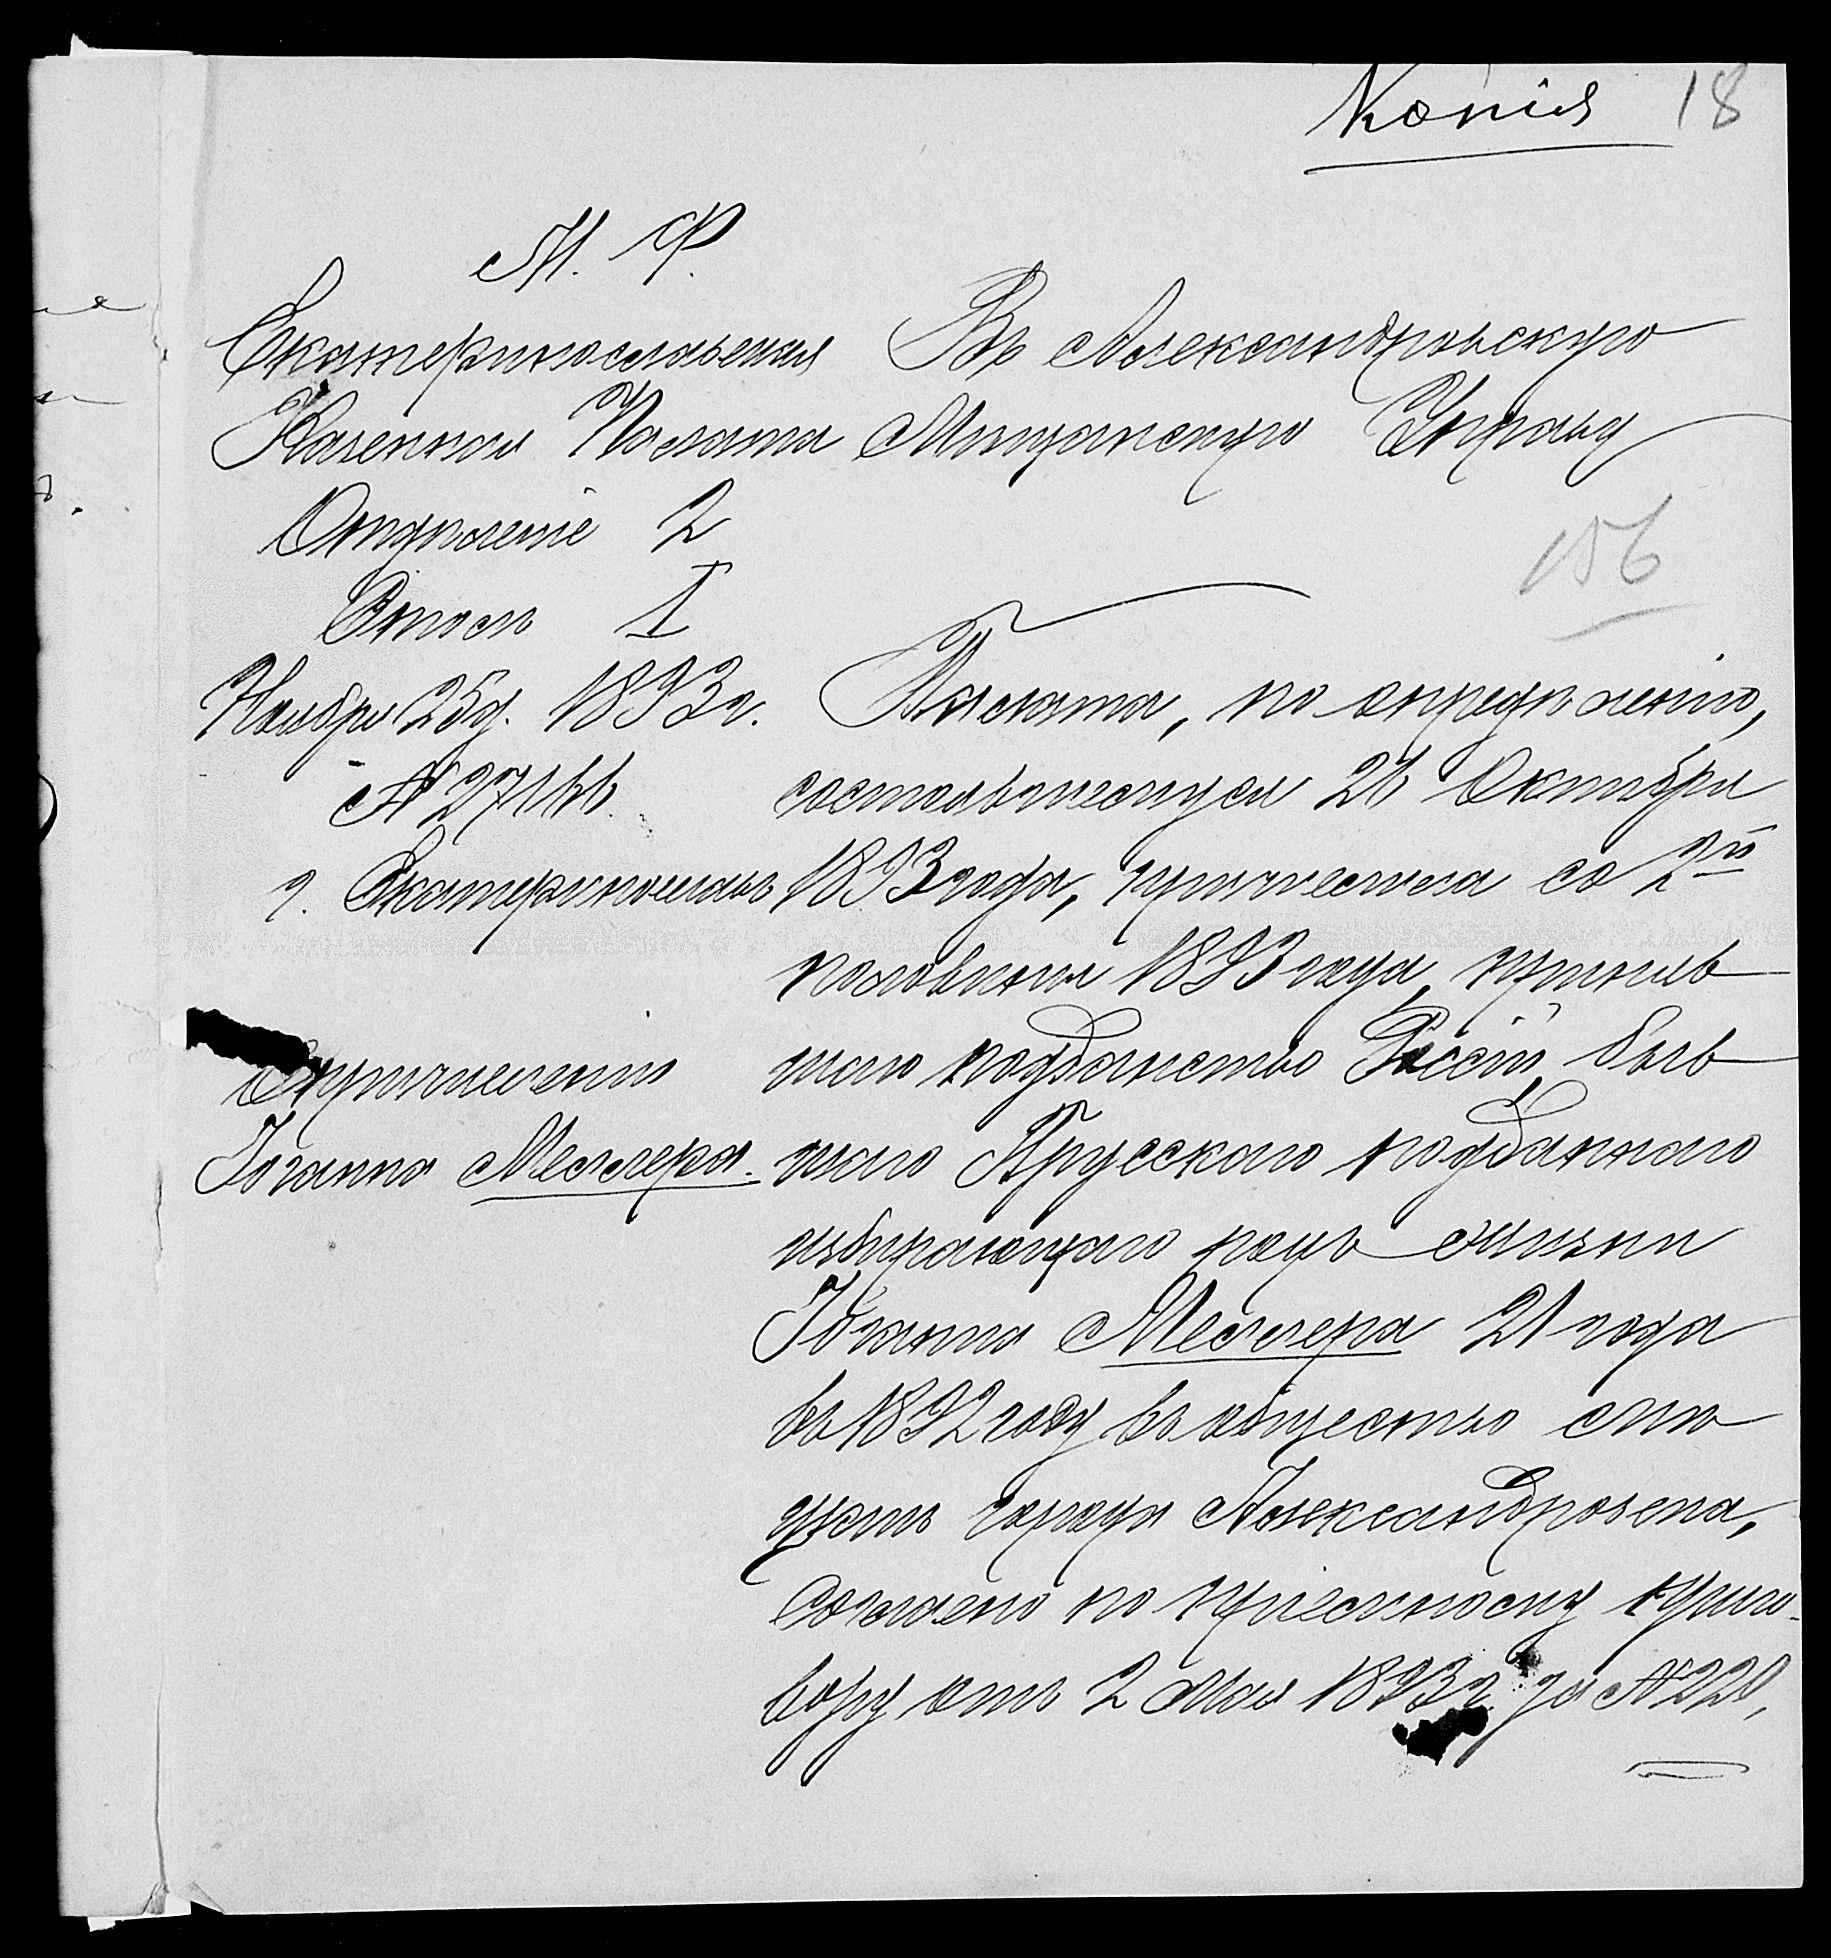 Копія 18
М. Ф.
Екатеринославская
Казенная Палата
Отдѣленіе 2
Столъ 1
Ноября 25 д. 1893 г.
№ 27166
г. Екатеринославъ
О причисленіи
Іоганна Меллера.
Въ Александровскую
Мѣщанскую Управу
156
Палата, по опредѣленію,
состоявшемуся 26 Октября
1893 года, причислила со 2й
половины 1893 года, приняв
шаго подданство Россіи, быв
шаго Прусскаго подданнаго
избирающаго родъ жизни
Іоганна Меллера 21 года
въ 1892 году въ общество мѣ
щанъ города Александровска,
согласно по пріемному приго-
вору отъ 2 Мая 1893 г. за № 220,